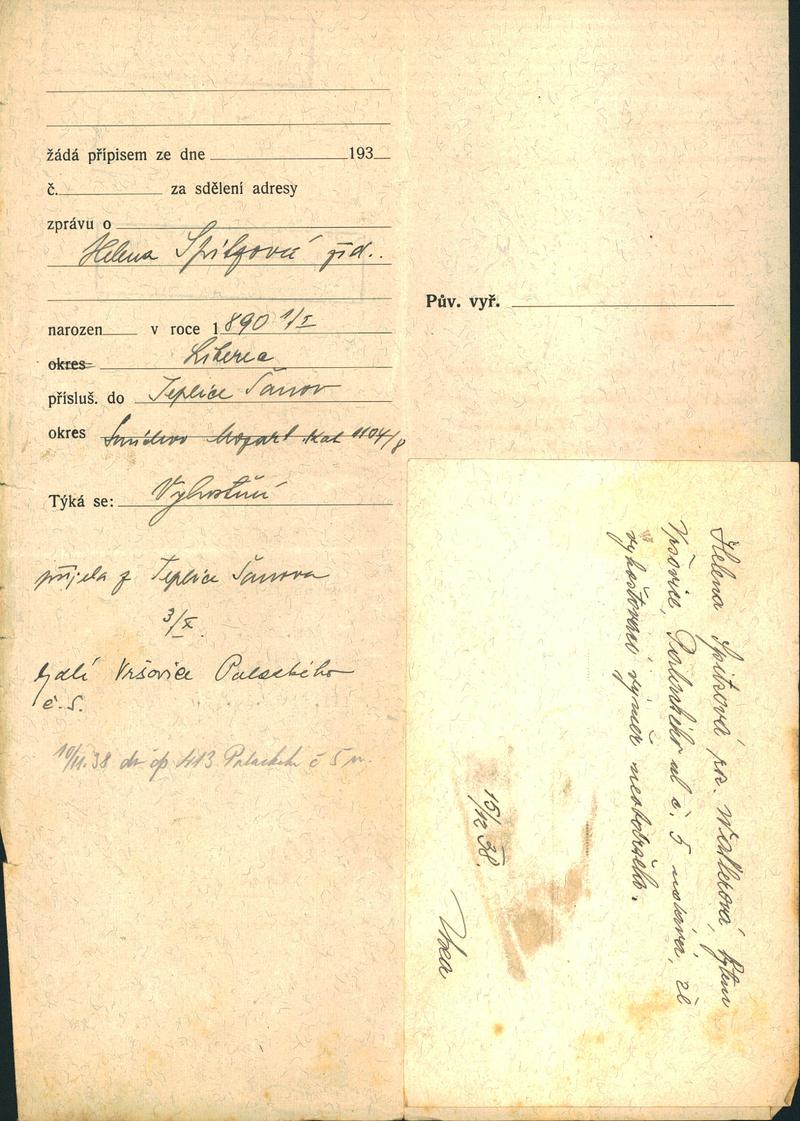 žádá přípisem ze dne 193
č. za sdělení adresy
zprávu o
Helena Spitzová žid..
narozen v roce 1890 1/I
okres Liberec
přísluš. do Teplice Šanov
okres Smíchov Mozart 1104/8
Týká se: Vyhoštění
přijela z Teplice Šanova
3/X.
bydlí Vršovice Palackého
č. 5.
10/11.38 čp 413 Palackého č 5
Pův. vyř.
Helena Spitzová roz. Wallerová, bytem
Vršovice, Palackého ul č. 5 udává, že
vyhošťovací výměr neobdržela.
15/12 38.